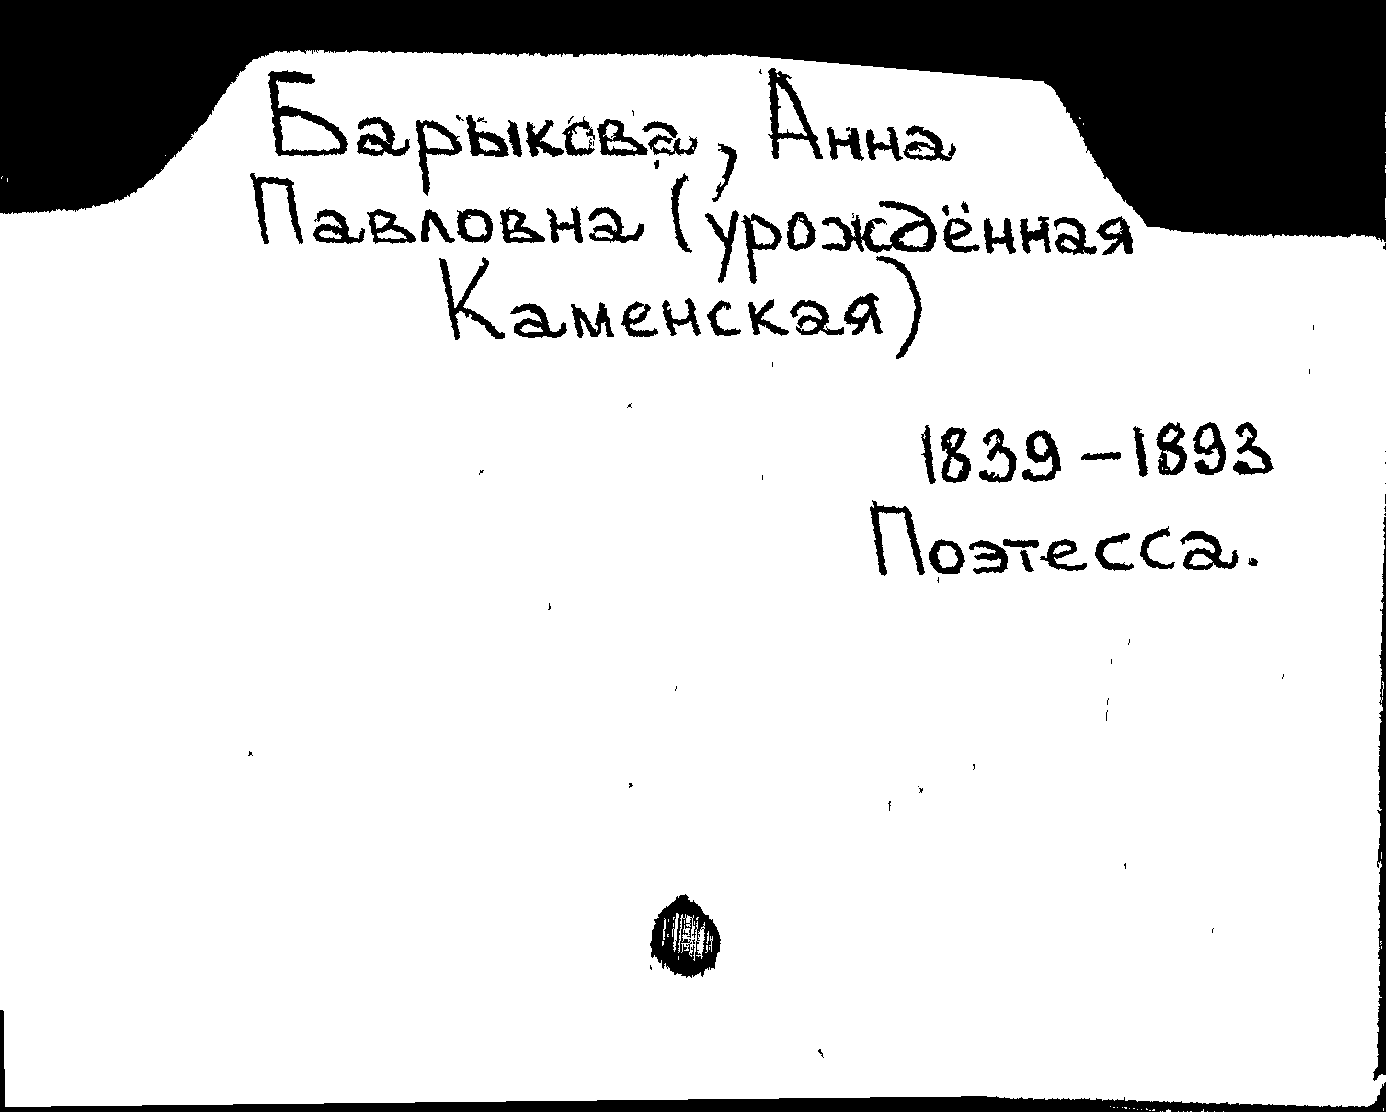 Барыкова, Анна
Павловна (урождённая
Каменская)
1839 – 1893
Поэтесса.